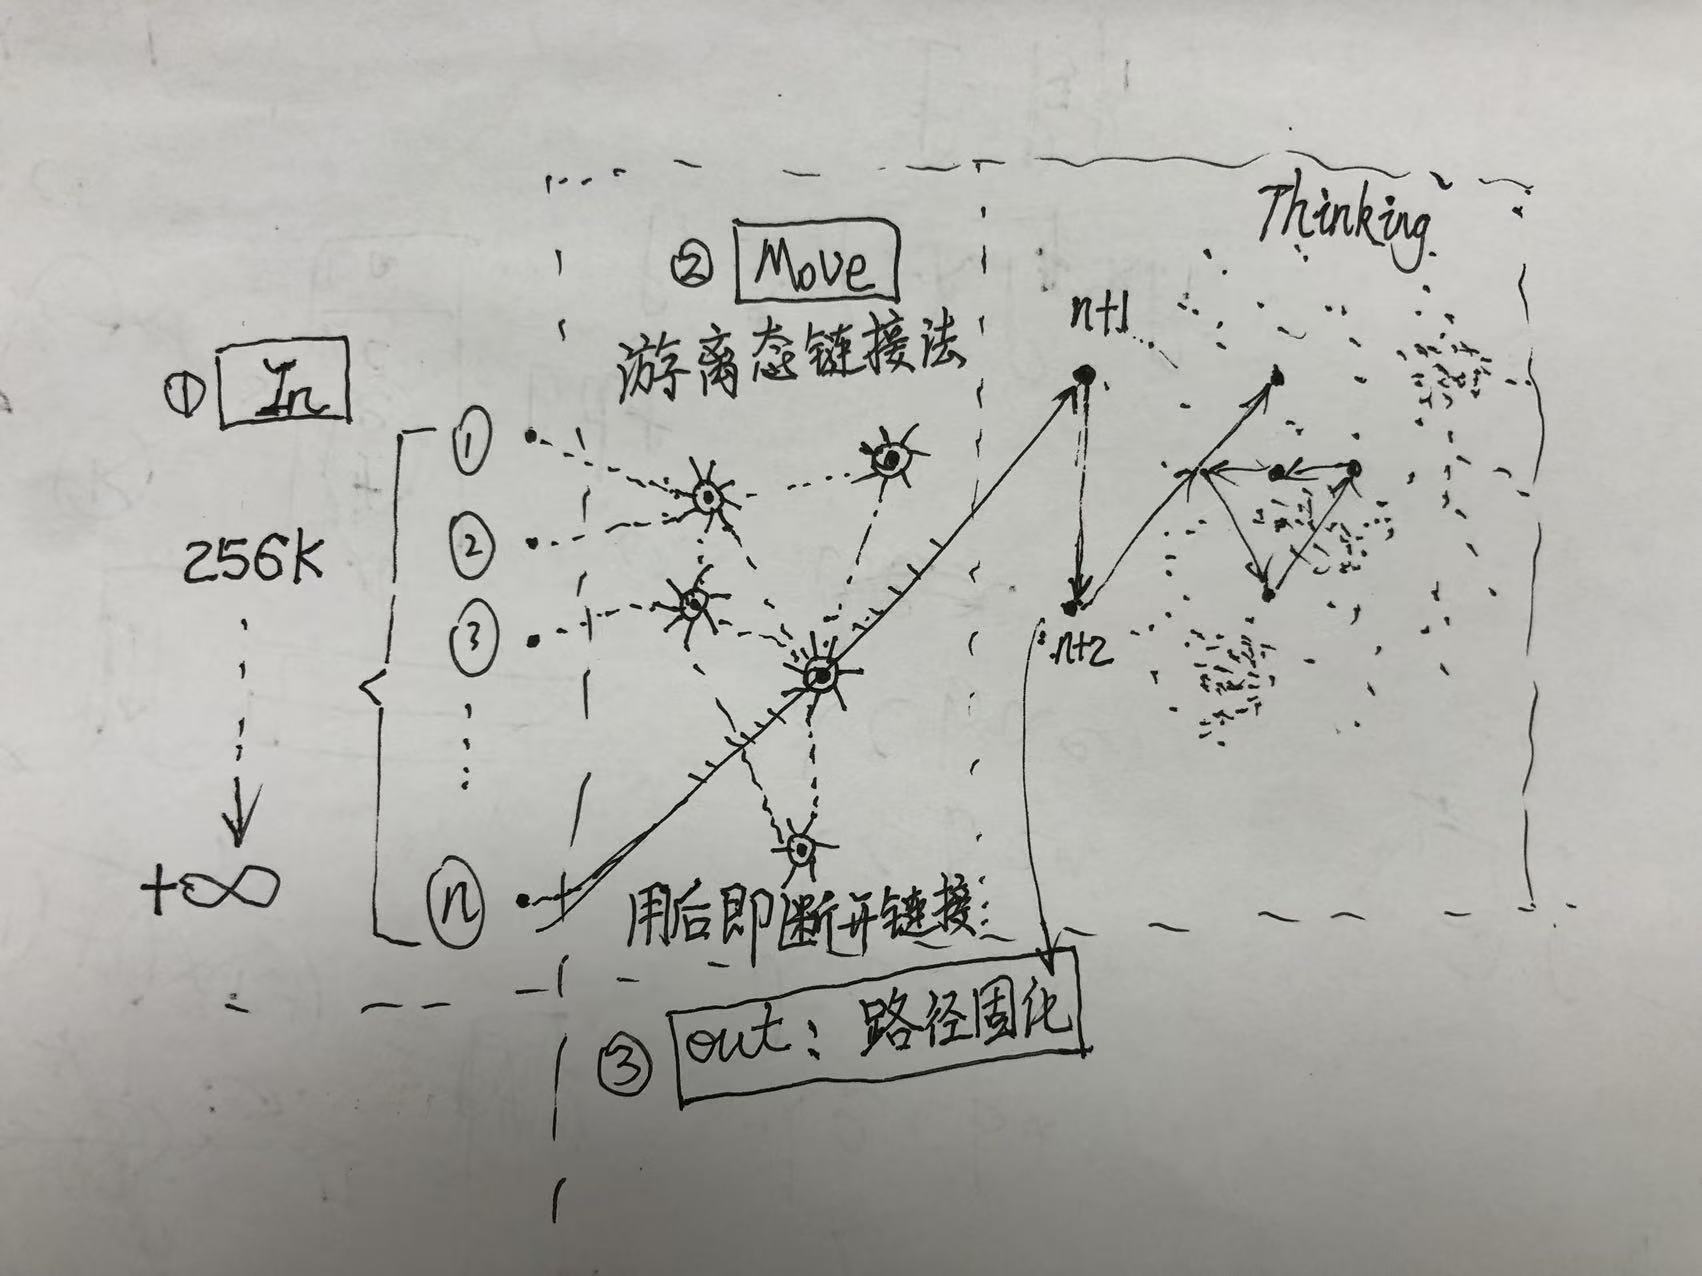 ① In
256K
+∞
①
②
③
n
② Move
游离态链接法
用后即断开链接
Thinking
n+1
n+2
③ out: 路径固化